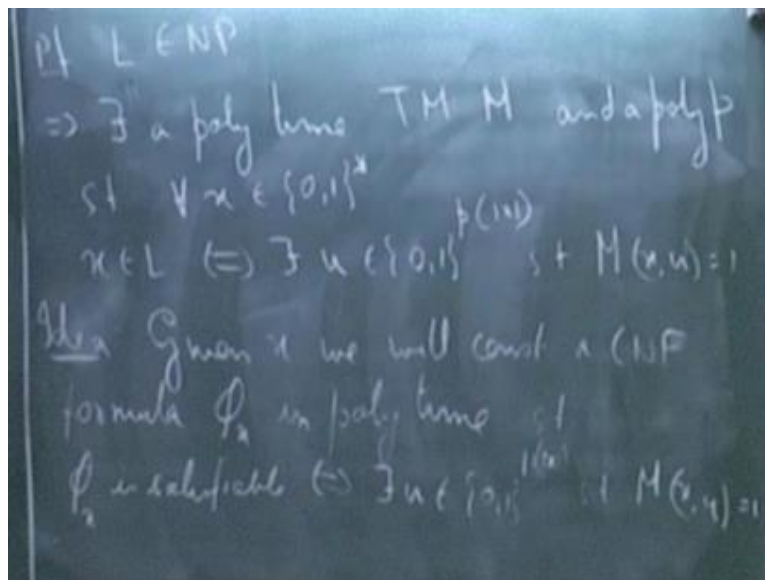 Pf L ∈ NP
=> ∃ a poly time TM M and a poly p
st ∀ x ∈ {0,1}*
x ∈ L <=> ∃ u ∈ {0,1}^p(|x|) st M(x,u)=1
Idea Given x we will const a CNF
formula φ_x in poly time st
φ_x is satisfiable <=> ∃ u ∈ {0,1}^p(|x|) st M(x,u)=1